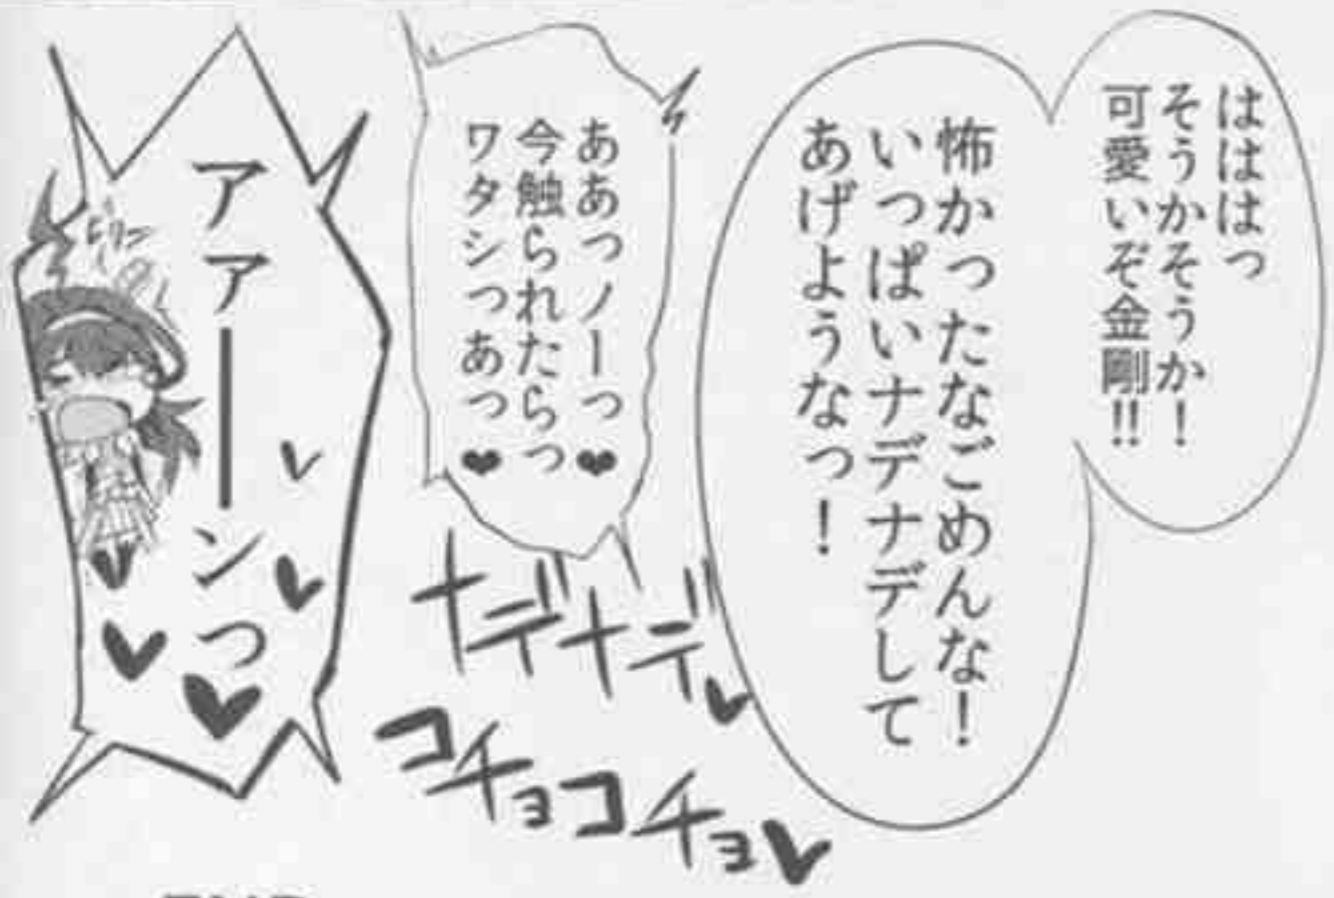 ははは っ
そうかそうか！
可愛いぞ金剛!!
怖かったなごめんな！
いっぱいナデナデして
あげようなっ！
ああっノーっ♥
今触られたらっ
ワタシっあっ♥
ナデナデ♥
コチョコチョ♥
アァーーンっ♥